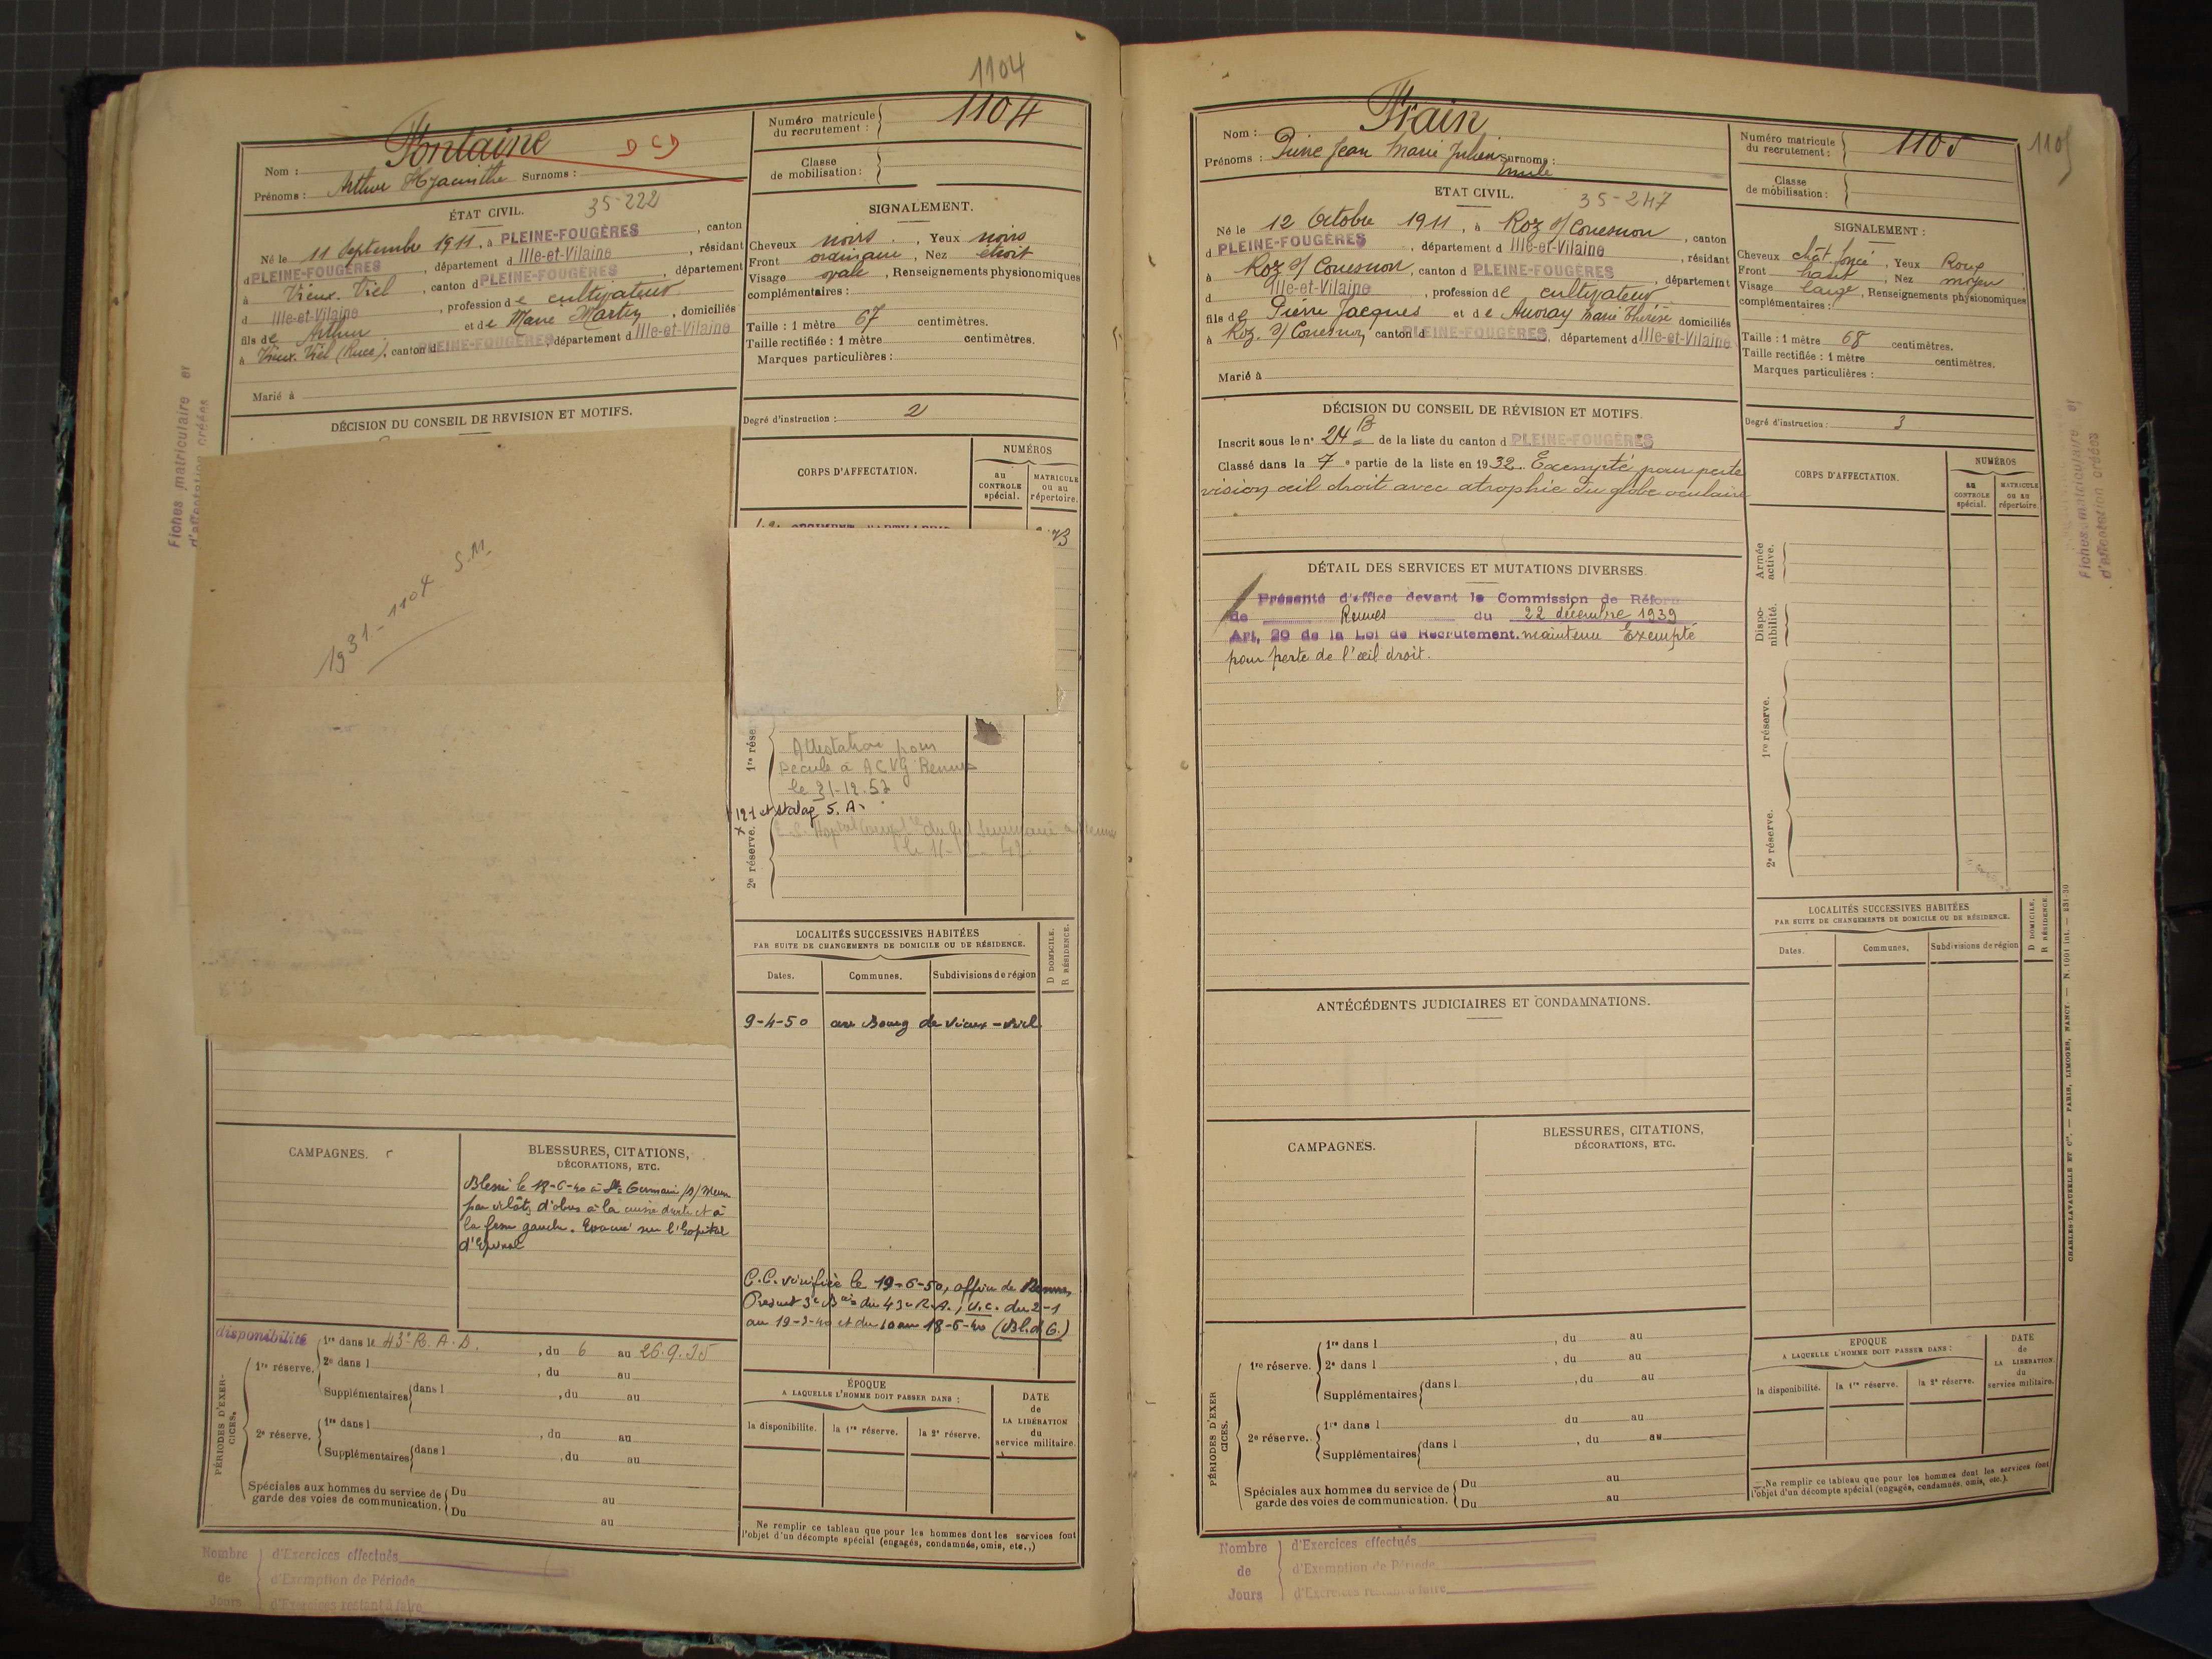 1104
Nom : Fontaine DCD
Prénoms : Arthur Hyacinthe Surnoms :
Numéro matricule du recrutement : 1104
Classe de mobilisation :
ÉTAT CIVIL. 35-222
Né le 11 Septembre 1911, à PLEINE-FOUGÈRES, canton
d PLEINE-FOUGÈRES, département d Ille-et-Vilaine, résidant
à Vieux-Viel, canton d PLEINE-FOUGÈRES, département
d Ille-et-Vilaine, profession de cultivateur
fils de Arthur et de Marie Martin, domiciliés
à Vieux-Viel, canton d PLEINE-FOUGÈRES, département d Ille-et-Vilaine
Marié à
SIGNALEMENT.
Cheveux noirs, Yeux noirs
Front ordinaire, Nez étroit
Visage ovale, Renseignements physionomiques
complémentaires :
Taille : 1 mètre 67 centimètres.
Taille rectifiée : 1 mètre centimètres.
Marques particulières :
Degré d'instruction : 2
Fiches matriculaire et
d'affectation créées
DÉCISION DU CONSEIL DE REVISION ET MOTIFS.
1931-1104 S.M.
CORPS D'AFFECTATION.
NUMÉROS
au CONTROLE spécial.
MATRICULE ou au répertoire.
1re rése
Attestation pour
pécule à ACVG Rennes
le 31-12-53
stalag 5. A.
2e réserve.
LOCALITÉS SUCCESSIVES HABITÉES
PAR SUITE DE CHANGEMENTS DE DOMICILE OU DE RÉSIDENCE.
D DOMICILE.
R RÉSIDENCE.
Dates. Communes. Subdivisions de région
9-4-50 au Bourg de Vieux-Viel
CAMPAGNES.
BLESSURES, CITATIONS,
DÉCORATIONS, ETC.
Blessé le 18-6-40 à St Germain /s/ Meuse
par éclats d'obus à la cuisse droite et à
la fesse gauche. Evacué sur l'hôpital
d'Epinal
C.C. vérifiée le 19-6-50, office de Rennes
Présent 3e Bie du 43e R.A., U.C. du 2-1
au 19-3-40 et du 10 au 18-6-40 (Bl. d. G.)
PÉRIODES D'EXERCICES.
disponibilité 1re dans le 43e R.A.D., du 6 au 26.9.35
1re réserve. 2e dans l , du au
Supplémentaires dans l , du au
2e réserve. 1re dans l , du au
Supplémentaires dans l , du au
Spéciales aux hommes du service de garde des voies de communication. Du au
Du au
ÉPOQUE
A LAQUELLE L'HOMME DOIT PASSER DANS :
la disponibilité. la 1re réserve. la 2e réserve.
DATE de LA LIBÉRATION du service militaire.
Ne remplir ce tableau que pour les hommes dont les services font
l'objet d'un décompte spécial (engagés, condamnés, omis, etc.,)
Nombre de Jours
d'Exercices effectués
d'Exemption de Période
d'Exercices restant à faire
1105
Nom : Frain
Prénoms : Pierre Jean Marie Julien Surnoms :
Emile
Numéro matricule du recrutement : 1105
Classe de mobilisation :
ETAT CIVIL. 35-247
Né le 12 Octobre 1911, à Roz s/ Couesnon, canton
d PLEINE-FOUGÈRES, département d Ille-et-Vilaine, résidant
à Roz s/ Couesnon, canton d PLEINE-FOUGÈRES, département
d Ille-et-Vilaine, profession de cultivateur
fils de Pierre Jacques et de Auvray Marie Thérèse domiciliés
à Roz s/ Couesnon, canton d PLEINE-FOUGÈRES, département d Ille-et-Vilaine
Marié à
SIGNALEMENT :
Cheveux chât. foncé, Yeux Roux
Front haut, Nez moyen
Visage large, Renseignements physionomiques
complémentaires :
Taille : 1 mètre 68 centimètres.
Taille rectifiée : 1 mètre centimètres.
Marques particulières :
Degré d'instruction : 3
Fiches matriculaire et
d'affectation créées
DÉCISION DU CONSEIL DE RÉVISION ET MOTIFS.
Inscrit sous le n° 24 B de la liste du canton d PLEINE-FOUGÈRES
Classé dans la 7e partie de la liste en 1932. Exempté pour perte
vision œil droit avec atrophie du globe oculaire
DÉTAIL DES SERVICES ET MUTATIONS DIVERSES.
Présenté d'office devant la Commission de Réforme
de Rennes du 22 décembre 1939
Art. 20 de la Loi de Recrutement. maintenu Exempté
pour perte de l'œil droit.
CORPS D'AFFECTATION.
NUMÉROS
au CONTROLE spécial.
MATRICULE ou au répertoire.
Armée active.
Disponibilité.
1re réserve.
2e réserve.
LOCALITÉS SUCCESSIVES HABITÉES
PAR SUITE DE CHANGEMENTS DE DOMICILE OU DE RÉSIDENCE.
D DOMICILE.
R RÉSIDENCE.
Dates. Communes. Subdivisions de région
ANTÉCÉDENTS JUDICIAIRES ET CONDAMNATIONS.
CAMPAGNES.
BLESSURES, CITATIONS,
DÉCORATIONS, ETC.
PÉRIODES D'EXERCICES.
1re réserve. 1re dans l , du au
2e dans l , du au
Supplémentaires dans l , du au
2e réserve. 1re dans l du au
Supplémentaires dans l , du au
Spéciales aux hommes du service de garde des voies de communication. Du au
Du au
EPOQUE
A LAQUELLE L'HOMME DOIT PASSER DANS :
la disponibilité. la 1re réserve. la 2e réserve.
DATE de LA LIBÉRATION du service militaire.
Ne remplir ce tableau que pour les hommes dont les services font
l'objet d'un décompte spécial (engagés, condamnés, omis, etc.).
CHARLES-LAVAUZELLE ET Cie. — PARIS, LIMOGES, NANCY. — N. 1001 int. — 231-30
Nombre de Jours
d'Exercices effectués
d'Exemption de Période
d'Exercices restant à faire